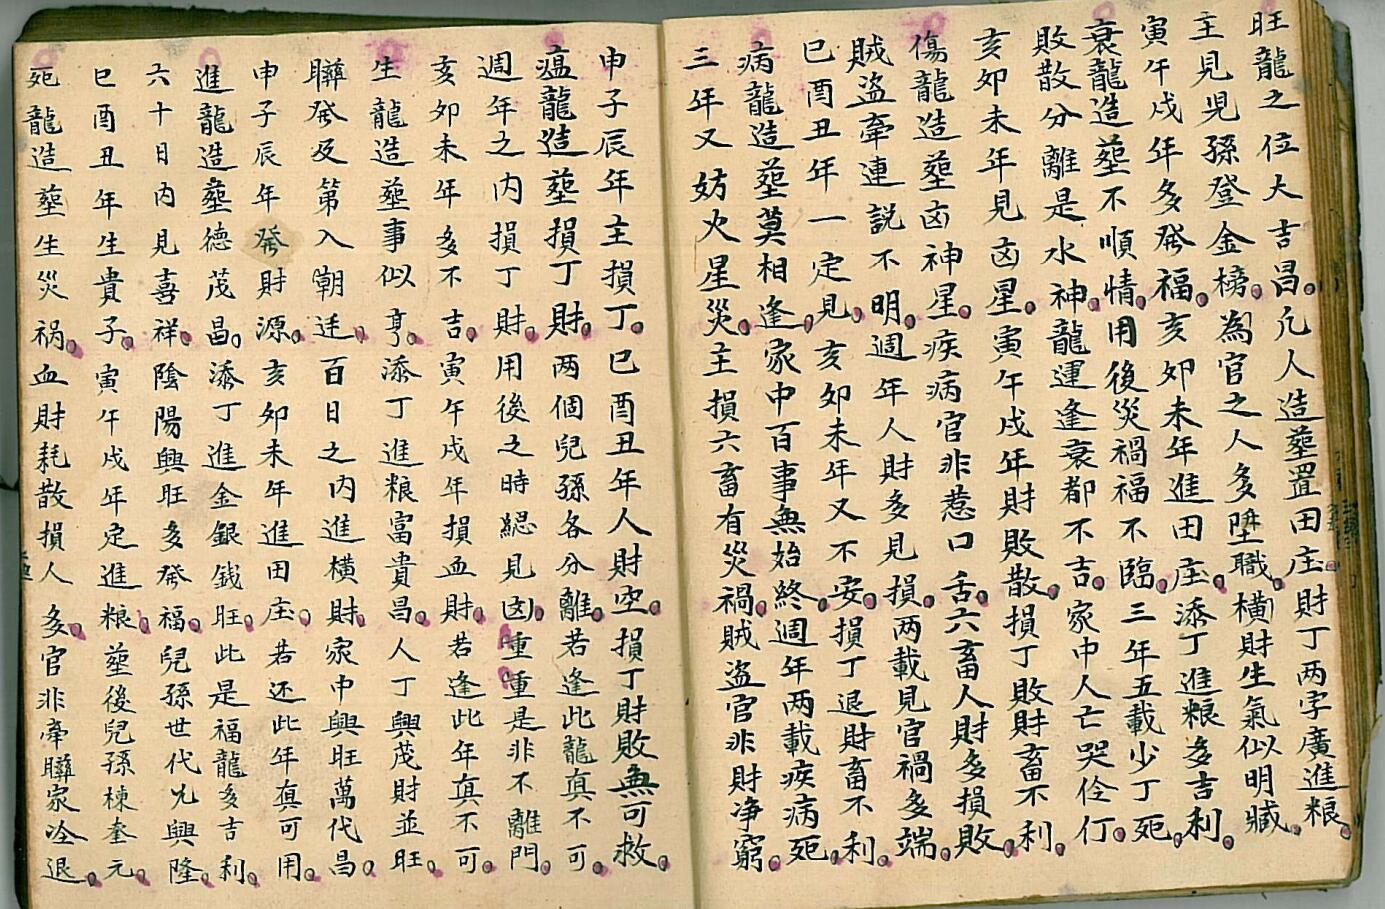 旺龍之位大吉昌凢人造塟置田庄財丁两字廣進粮
主見児孫登金榜為官之人多陞職横財生氣似明臧
寅午戍年多發福亥卯未年進田庄添丁進粮多吉利
衰龍造塟不順情用後災禍福不臨三年五載少丁死
敗散分離是水神龍運逢衰都不吉家中人亡哭伶仃
亥卯未年見凶星寅午戍年財敗散損丁敗財畜不利
傷龍造塟凶神星疾病官非惹口舌六畜人財多損敗
賊盗牽連説不明週年人財多見損两載見官禍多端
巳酉丑年一定見亥卯未年又不安損丁退財畜不利
病龍造塟莫相逢家中百事無始終週年两載疾病死
三年又妨火星災主損六畜有災禍賊盗官非財净窮
申子辰年主損丁巳酉丑年人財空損丁財敗無可救
瘟龍造塟損丁財两個兒孫各分離若逢此龍真不可
週年之内損丁財用後之時縂見凶重重是非不離門
亥卯未年多不吉寅午戍年損血財若逢此年真不可
生龍造塟事似亨添丁進粮富貴昌人丁興茂財並旺
聯發及第入朝廷百日之内進横財家中興旺萬代昌
申子辰年發財源亥卯未年進田庄若还此年真可用
進龍造塟德茂昌添丁進金銀錢旺此是福龍多吉利
六十日内見喜祥陰陽興旺多發福兒孫世代尤興隆
巳酉丑年生貴子寅午戍年定進粮塟後兒孫棟奎元
死龍造塟生災祸血財耗散損人多官非牽聯家冷退